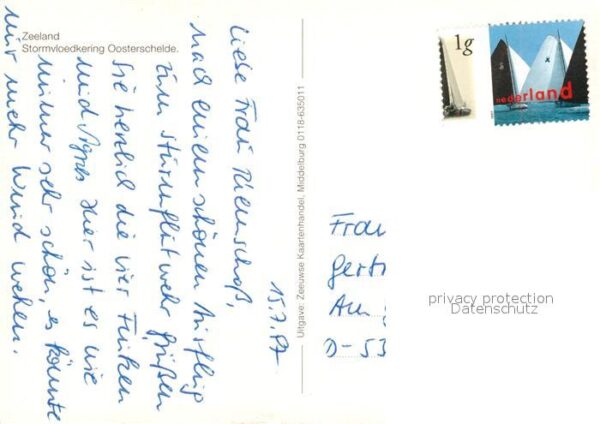 Zeeland
Stormvloedkering Oosterschelde.
15.7.97
Liebe Frau Riemschoß,
nach einem schönen Ausflug
zum Sturmflutwehr grüßen
Sie herzlich die vier Finken
und Agnes. Hier ist es wie
immer sehr schön, es könnte
nur mehr Wind wehen.
Uitgave: Zeeuwse Kaartenhandel, Middelburg 0118-635011
1g
nederland
Frau
Gert
Am
D-53
privacy protection
Datenschutz